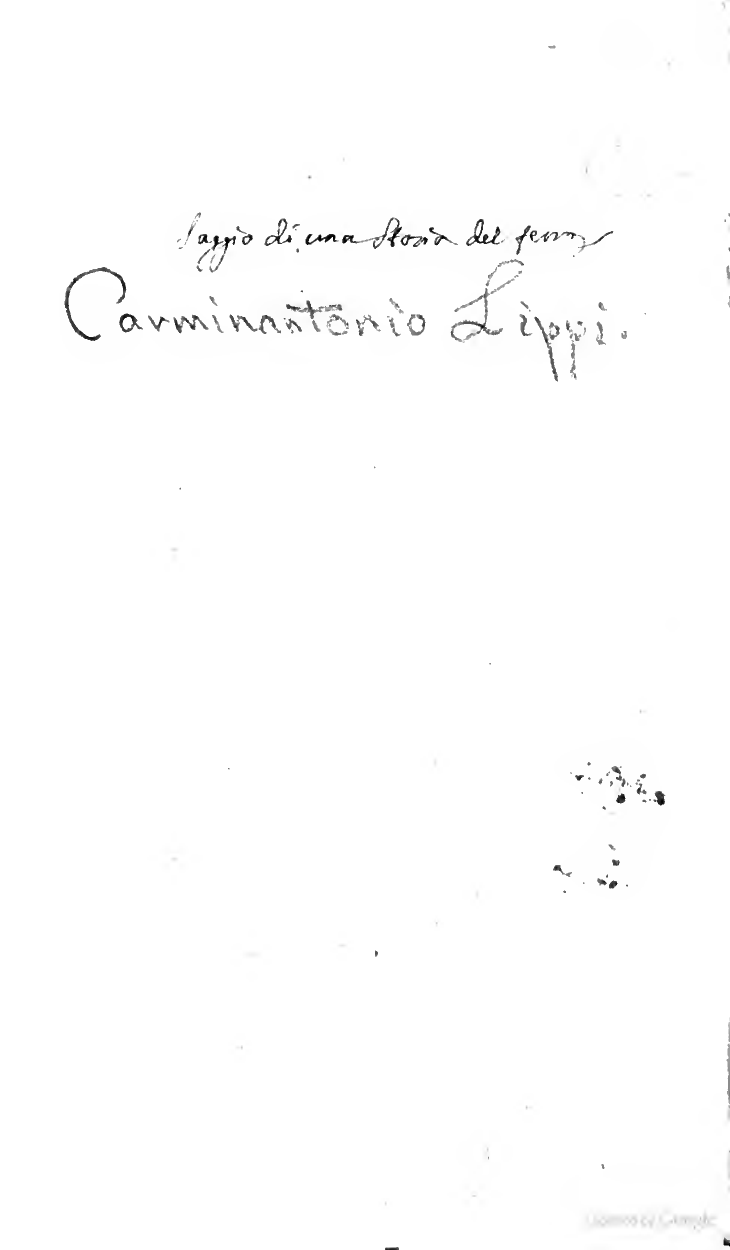 Saggio di una Storia del ferro
Carminantonio Lippi.
Digitized by Google